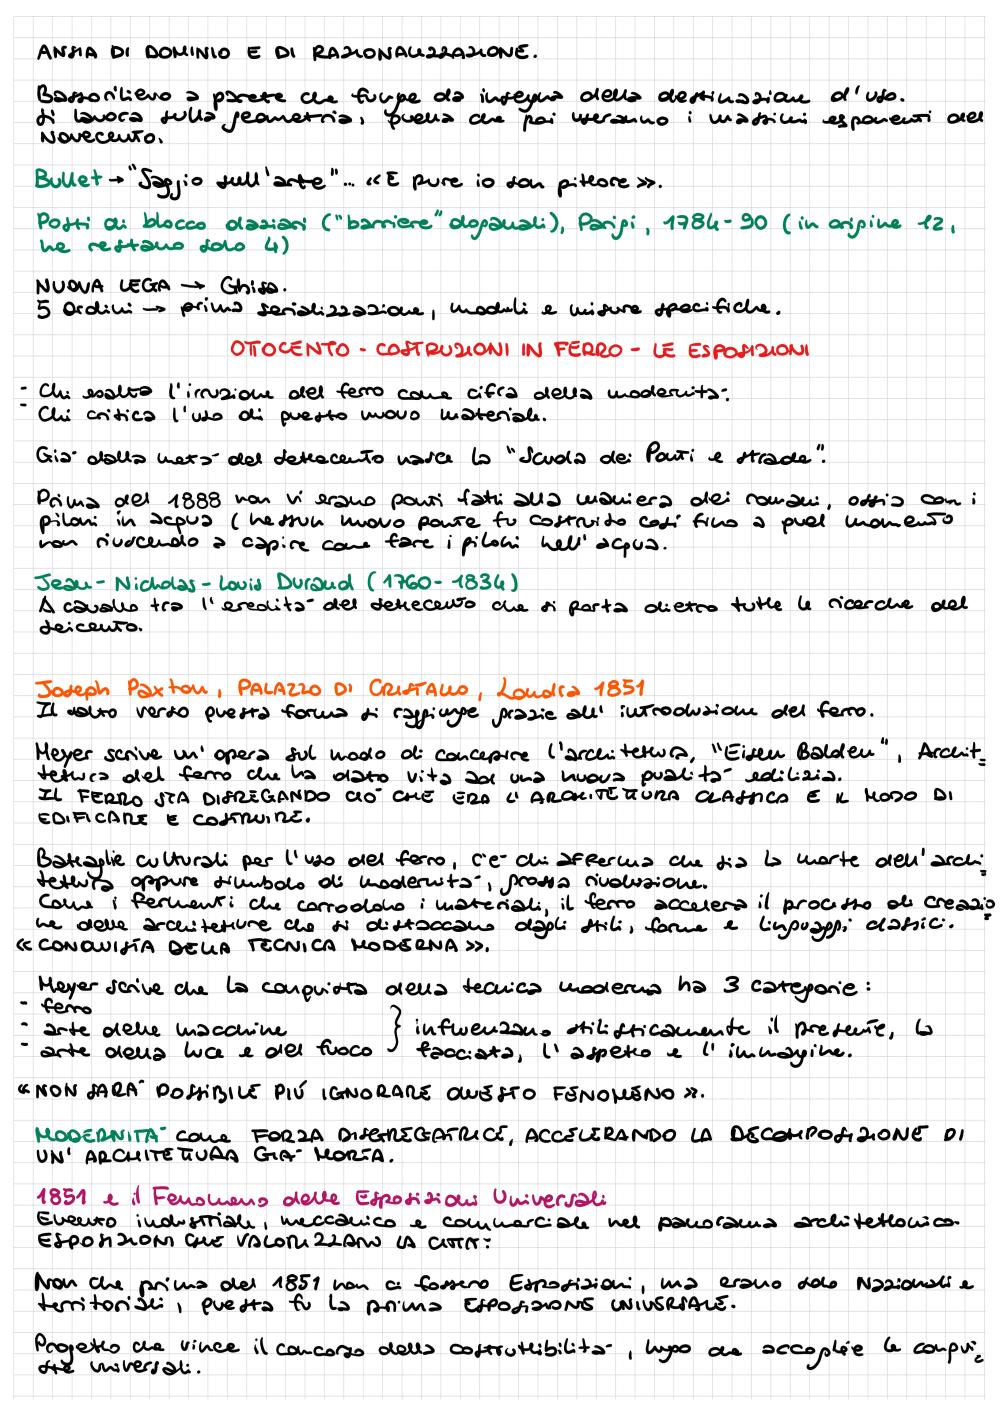 ANSIA DI DOMINIO E DI RAZIONALIZZAZIONE.
Bassorilievo a parete che funge da insegna della destinazione d'uso.
Si lavora sulla geometria, quella che poi useranno i massimi esponenti del
Novecento.
Bullet → "Saggio sull'arte"... «E pure io son pittore».
Posti di blocco daziari ("barriere" doganali), Parigi, 1784-90 (in origine 12,
ne restano solo 4)
NUOVA LEGA → Ghisa.
5 Ordini → prima serializzazione, moduli e misure specifiche.
OTTOCENTO - COSTRUZIONI IN FERRO - LE ESPOSIZIONI
- Chi esalta l'irruzione del ferro come cifra della modernità.
- Chi critica l'uso di questo nuovo materiale.
Già dalla metà del settecento nasce la "Scuola dei Ponti e strade".
Prima del 1888 non vi erano ponti fatti alla maniera dei romani, ossia con i
piloni in acqua (nessun nuovo ponte fu costruito così fino a quel momento
non riuscendo a capire come fare i piloni nell'acqua.
Jean-Nicholas-Louis Durand (1760-1834)
A cavallo tra l'eredità del settecento che si porta dietro tutte le ricerche del
seicento.
Joseph Paxton, PALAZZO DI CRISTALLO, Londra 1851
Il salto verso questa forma si raggiunge grazie all'introduzione del ferro.
Meyer scrive un'opera sul modo di concepire l'architettura, "Eisen Balden", Archit=
tettura del ferro che ha dato vita ad una nuova qualità edilizia.
IL FERRO STA DISREGANDO CIÒ CHE ERA L'ARCHITETTURA CLASSICA E IL MODO DI
EDIFICARE E COSTRUIRE.
Battaglie culturali per l'uso del ferro, c'è chi afferma che sia la morte dell'archi=
tettura oppure simbolo di modernità, grossa rivoluzione.
Come i fermenti che corrodono i materiali, il ferro accelera il processo di creazio=
ne delle architetture che si distaccano dagli stili, forme e linguaggi classici.
«CONQUISTA DELLA TECNICA MODERNA».
Meyer scrive che la conquista della tecnica moderna ha 3 categorie:
- ferro
- arte delle macchine } influenzano stilisticamente il presente, la
- arte della luce e del fuoco facciata, l'aspetto e l'immagine.
«NON SARÀ POSSIBILE PIÚ IGNORARE QUESTO FENOMENO».
MODERNITÀ come FORZA DISGREGATRICE, ACCELERANDO LA DECOMPOSIZIONE DI
UN'ARCHITETTURA GIÀ MORTA.
1851 e il Fenomeno delle Esposizioni Universali
Evento industriale, meccanico e commerciale nel panorama architettonico.
ESPOSIZIONI CHE VALORIZZANO LA CITTÀ.
Non che prima del 1851 non ci fossero Esposizioni, ma erano solo Nazionali e
territoriali, questa fu la prima ESPOSIZIONE UNIVERSALE.
Progetto che vince il concorso della costruttibilità, luogo che accoglie le conqui=
ste universali.